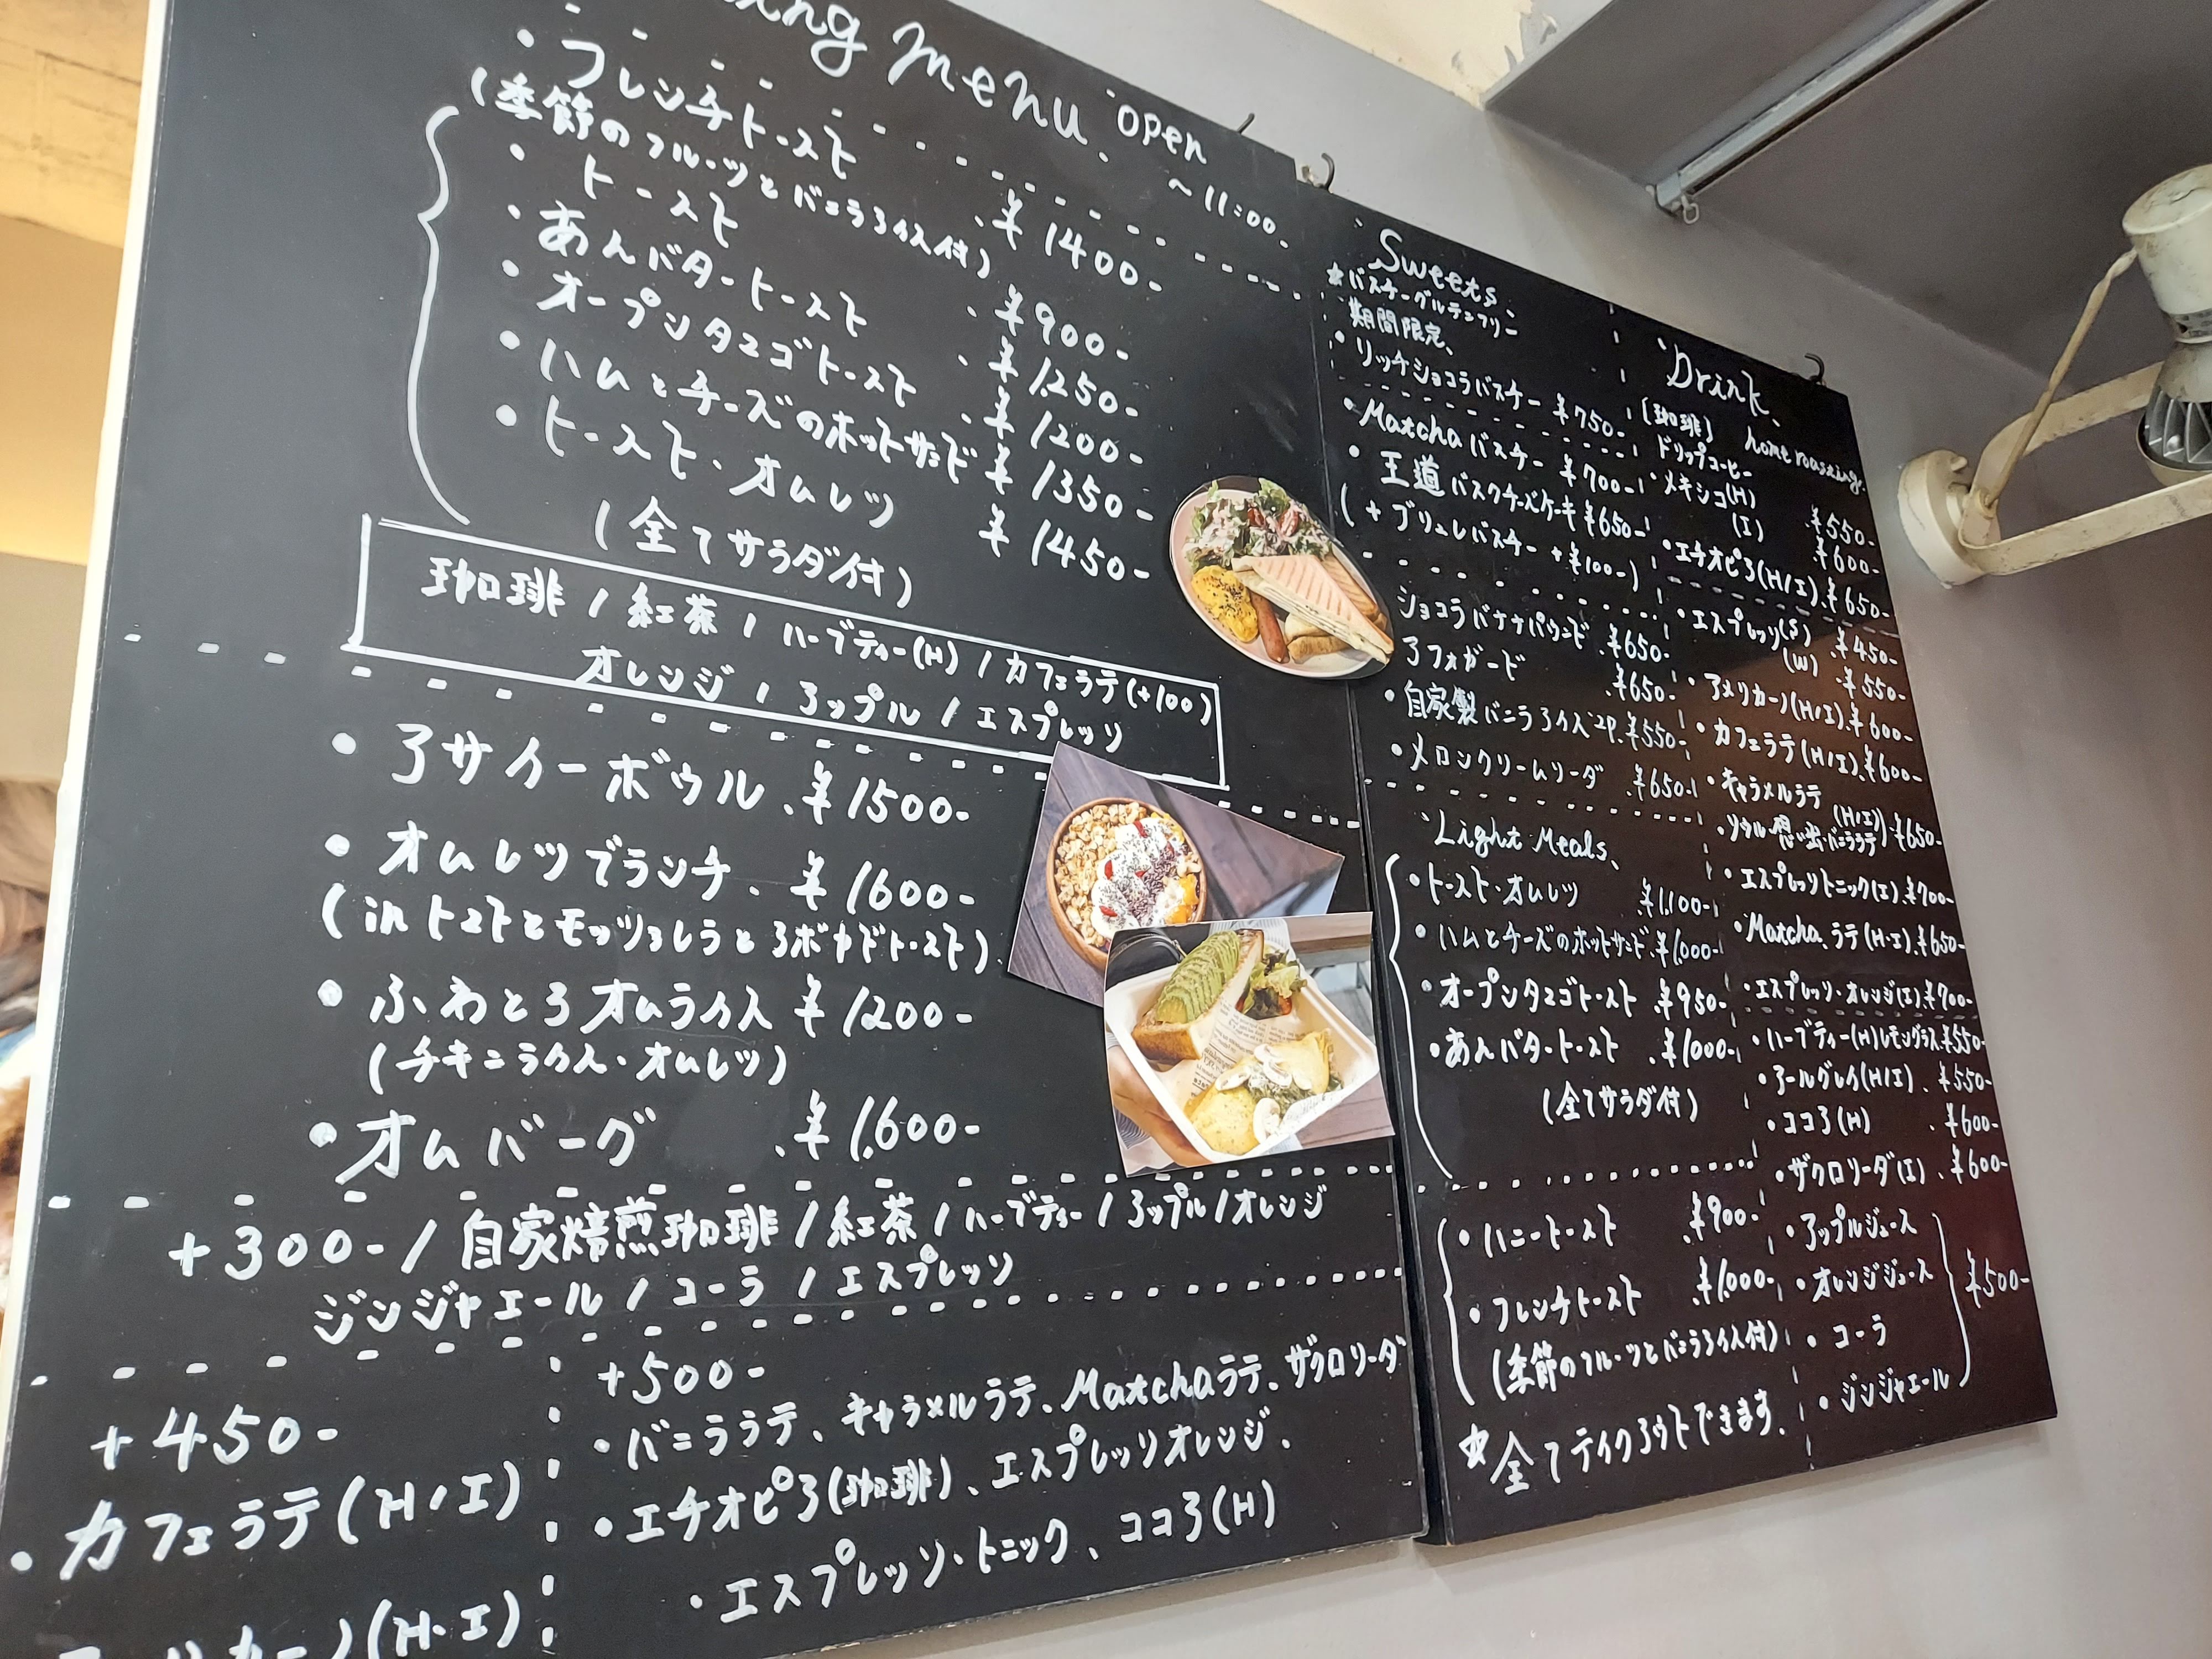 ing menu. open ~11:00.
・フレンチトースト ¥1400-
(季節のフルーツとバニラアイス付)
・トースト ¥900-
・あんバタートースト ¥1250-
・オープンタマゴトースト ¥1200-
・ハムとチーズのホットサンド ¥1350-
・トースト・オムレツ ¥1450-
(全てサラダ付)
珈琲 / 紅茶 / ハーブティー(H) / カフェラテ(+100)
オレンジ / アップル / エスプレッソ
・アサイーボウル ¥1500-
・オムレツブランチ ¥1600-
(in トマトとモッツァレラとアボカドトースト)
・ふわとろオムライス ¥1200-
(チキンライス・オムレツ)
・オムバーグ ¥1,600-
+300- / 自家焙煎珈琲 / 紅茶 / ハーブティー / アップル / オレンジ
ジンジャエール / コーラ / エスプレッソ
+450-
・カフェラテ(H/I)
カーノ(H・I)
+500-
・バニララテ、キャラメルラテ、Matchaラテ、ザクロソーダ
・エチオピア(珈琲)、エスプレッソオレンジ、
・エスプレッソ・トニック、ココア(H)
Sweets.
☆バスチーグルテンフリー
期間限定、
・リッチショコラバスチー ¥750-
・Matchaバスチー ¥700-
・王道バスクチーズケーキ ¥650-
(+ブリュレバスチー +¥100-)
ショコラバナナパウンド ¥650-
アフォガード ¥650-
・自家製バニラアイス2P ¥550-
・メロンクリームソーダ ¥650-
Light Meals、
・トースト・オムレツ ¥1,100-
・ハムとチーズのホットサンド ¥1,000-
・オープンタマゴトースト ¥950-
・あんバタートースト ¥1000-
(全てサラダ付)
・ハニートースト ¥900-
・フレンチトースト ¥1,000-
(季節のフルーツとバニラアイス付)
☆全てテイクアウトできます.
Drink、
(珈琲) home roasting.
ドリップコーヒー
・メキシコ(H) ¥550-
(I) ¥600-
・エチオピア(H/I) ¥650-
・エスプレッソ(S) ¥450-
(W) ¥550-
・アメリカーノ(H/I) ¥600-
・カフェラテ(H/I) ¥600-
・キャラメルラテ
(H/I) ¥650-
・ソウル思い出バニララテ
・エスプレッソトニック(I) ¥700-
・Matchaラテ(H・I) ¥650-
・エスプレッソ・オレンジ(I) ¥700-
・ハーブティー(H)レモングラス ¥550-
・アールグレイ(H/I) ¥550-
・ココア(H) ¥600-
・ザクロソーダ(I) ¥600-
・アップルジュース
・オレンジジュース
¥500-
・コーラ
・ジンジャエール